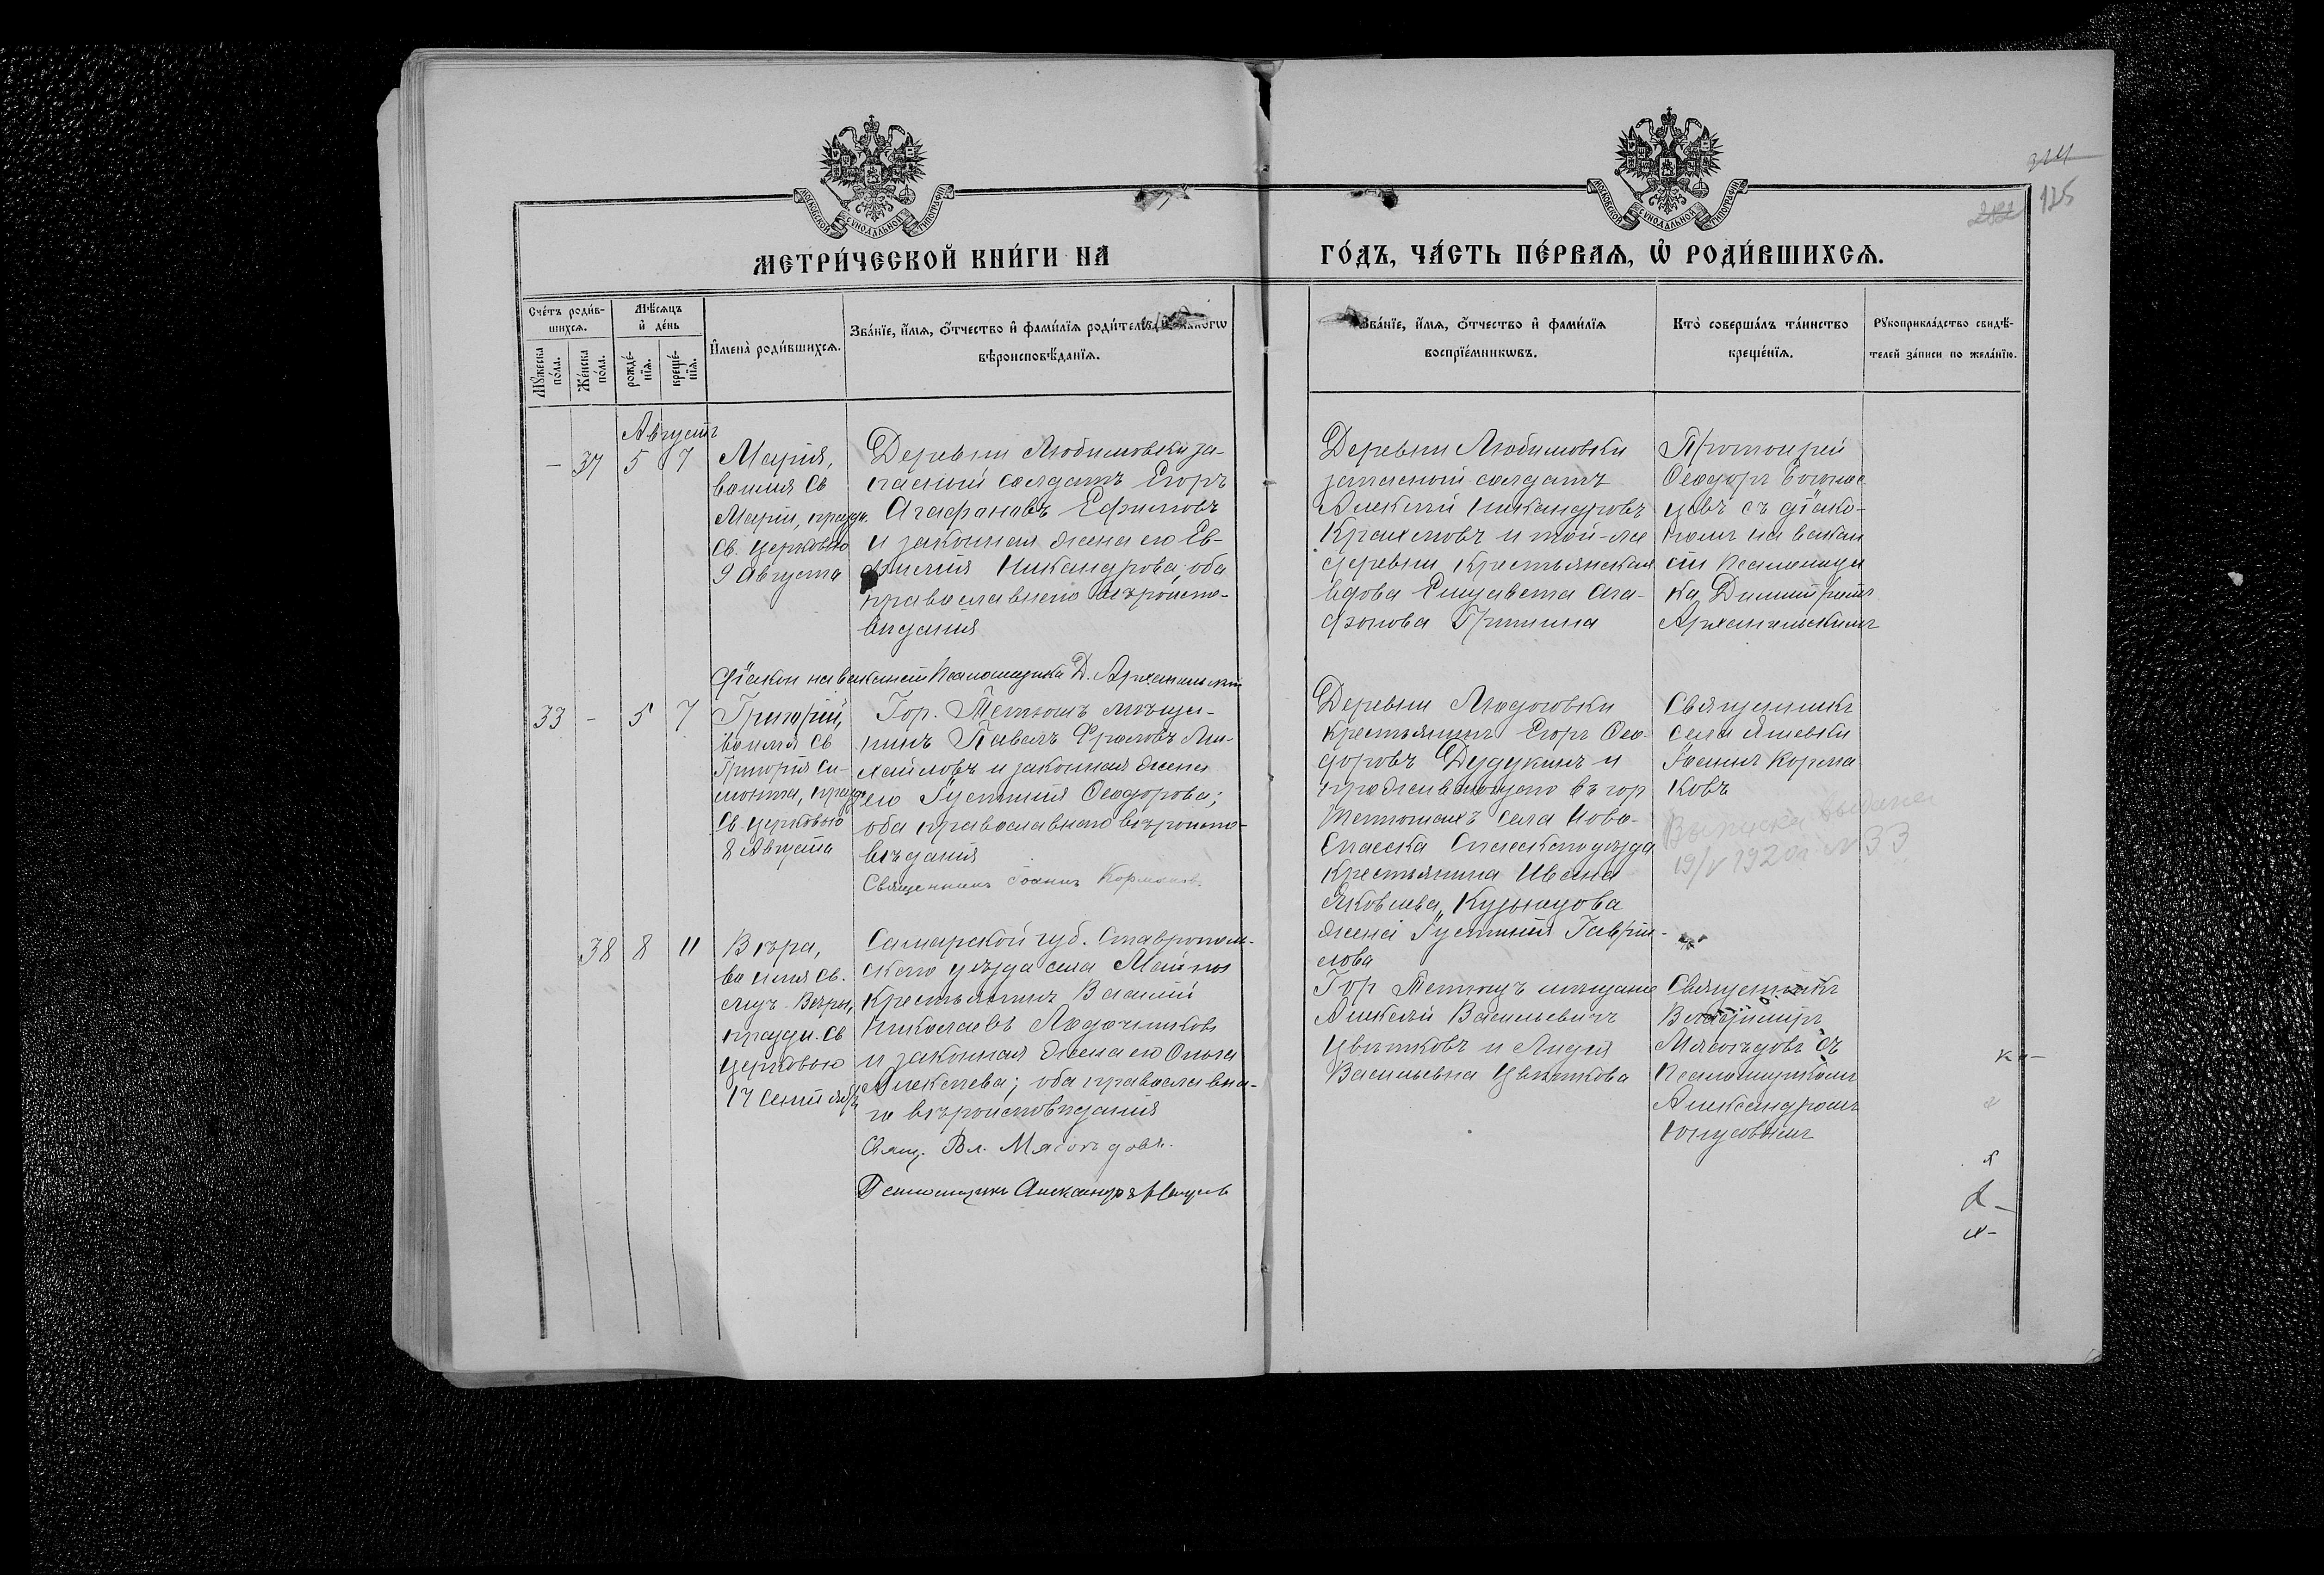 125
МЕТРИ́ЧЕСКОЙ КНИ́ГИ НА
ГО́ДЪ, ЧА́СТЬ ПЕ́РВАѦ, Ѡ҆ РОДИ́ВШИХСѦ.
МОСКОВСКОЙ СѴНОДАЛЬНОЙ ТИПОГРАФІИ
МОСКОВСКОЙ СѴНОДАЛЬНОЙ ТИПОГРАФІИ
Сче́тъ роди́в-
шихсѧ.
Мꙋ́жеска по́ла.
Же́нска по́ла.
Мѣ́сѧцъ
и҆ де́нь
рожде́-
нїѧ.
креще́-
нїѧ.
И҆мена̀ роди́вшихсѧ.
Зва́нїе, и҆́мѧ, ѻ҆́тчество и҆ фами́лїѧ роди́телей,
вѣроисповѣ́данїѧ.
Зва́нїе, и҆́мѧ, ѻ҆́тчество и҆ фами́лїѧ
воспрїе́мникѡвъ.
Кто̀ соверша́лъ та́инство
креще́нїѧ.
Рꙋкоприкла́дство свидѣ́-
телей за́писи по жела́нїю.
Августъ
– 37 5 7
Марія,
во имя Св
Маріи, празд.
Св. церковью
9 Августа
Деревни Любимовки за-
пасный солдатъ Егоръ
Агафоновъ Ефимовъ
и законная жена его Ев-
фимія Никандрова, оба
православнаго вѣроиспо-
вѣданія
Деревни Любимовки
запасный солдатъ
Алексѣй Никандровъ
и той-же
деревни крестьянская
вдова Елизавета Ага-
фонова Гришина
Протоіерей
Ѳеодоръ
съ діако-
номъ на вакан
сіи псаломщи
ка Димитріемъ
Архангельскимъ
Діаконъ на вакансіи Псаломщика Д. Архангельскій
33 – 5 7
Григорій,
во имя Св
Григорія Си-
наита, празд.
Св. церковью
8 Августа
Гор. Тетюшъ мѣща-
нинъ Павелъ Фроловъ Ми-
хайловъ и законная жена
его Іустинія Ѳеодорова;
оба православнаго вѣроиспо-
вѣданія
Священникъ Іоаннъ Кормаковъ
Деревни Ледоговки
крестьянинъ Егоръ Ѳео-
доровъ Дудукинъ и
проживающаго въ гор
Тетюшахъ села Ново-
Спасска Спасскаго уѣзда
крестьянина Ивана
Яковлева Кузнецова
жена Іустинія Гаврии-
лова
Священникъ
села Яшевки
Іоаннъ Корма
ковъ
Выписка выдана
19/V 1920 г № 33
38 8 11
Вѣра,
во имя Св.
муч. Вѣры,
праздн. Св
церковью
17 Сентября
Самарской губ. Ставрополь-
скаго уѣзда села Майны
крестьянинъ Василій
Николаевъ Лодочниковъ
и законная жена его Ольга
Алексѣева; оба православна-
го вѣроисповѣданія
Свящ. Вл. Мясоѣдовъ.
Псаломщикъ Александръ Юнусовъ
Гор Тетюшъ мѣщане
Алексѣй Васильевичъ
Цвѣтковъ и Лидія
Васильевна Цвѣткова
Священникъ
Владиміръ
Мясоѣдовъ съ
Псаломщикомъ
Александромъ
Юнусовымъ